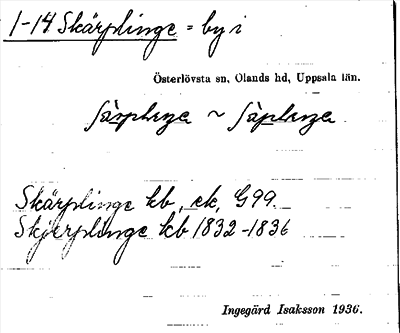 1-14 Skärplinge = by i
Österlövsta sn, Olands hd, Uppsala län.
~
Skärplinge kb, ek, G99.
Skjerplinge kb 1832-1836
Ingegärd Isaksson 1936.